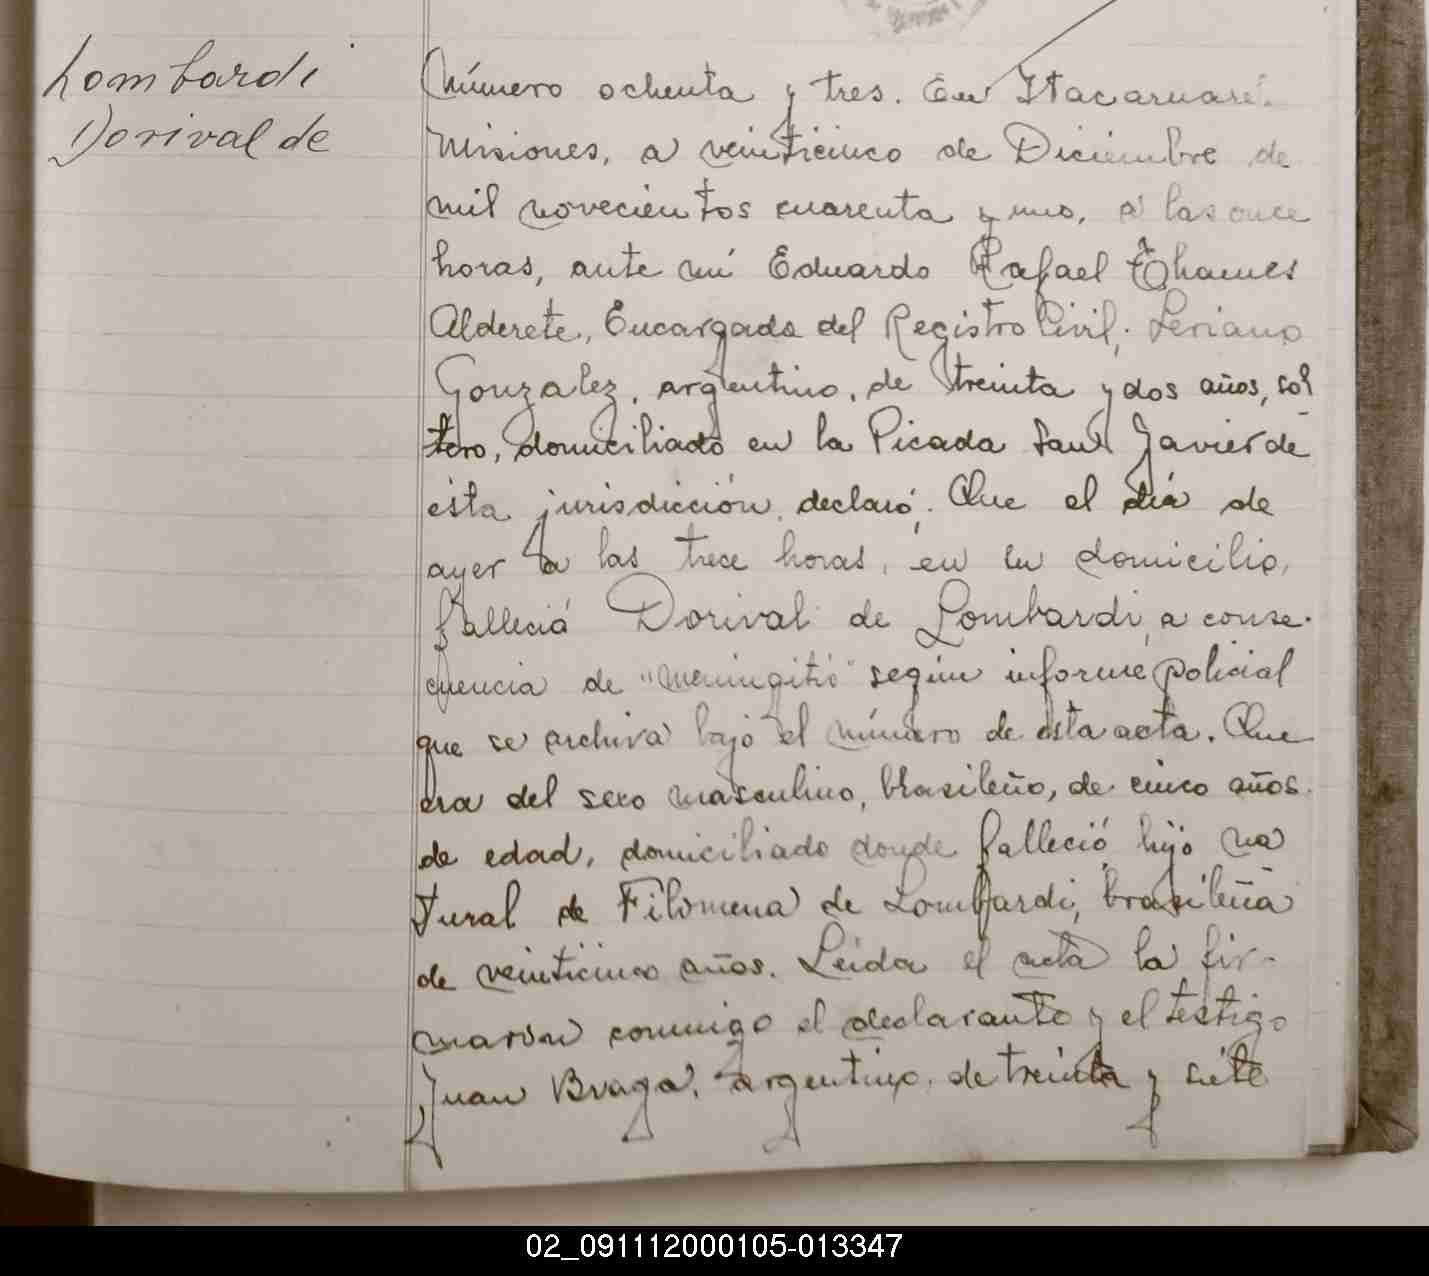 Lombardi
Dorival de
Número ochenta y tres. En Itacaruaré.
Misiones, a veinticinco de Diciembre de
mil novecientos cuarenta y uno, a las once
horas, ante mí Eduardo Rafael Thames
Alderete, Encargado del Registro Civil;
Gonzalez, argentino, de treinta y dos años, sol
tero, domiciliado en la Picada San Javier de
ésta jurisdicción, declaró: Que el día de
ayer a las trece horas, en su domicilio,
falleció Dorival de Lombardi, a conse-
cuencia de "meningitis" según informe policial
que se archiva bajo el número de esta acta. Que
era del sexo masculino, brasileño, de cinco años
de edad, domiciliado donde falleció, hijo na
tural de Filomena de Lombardi, brasileña
de veinticinco años. Leída el acta la fir-
maron conmigo el declarante y el testigo
Juan Braga, argentino, de treinta y siete
02_091112000105-013347